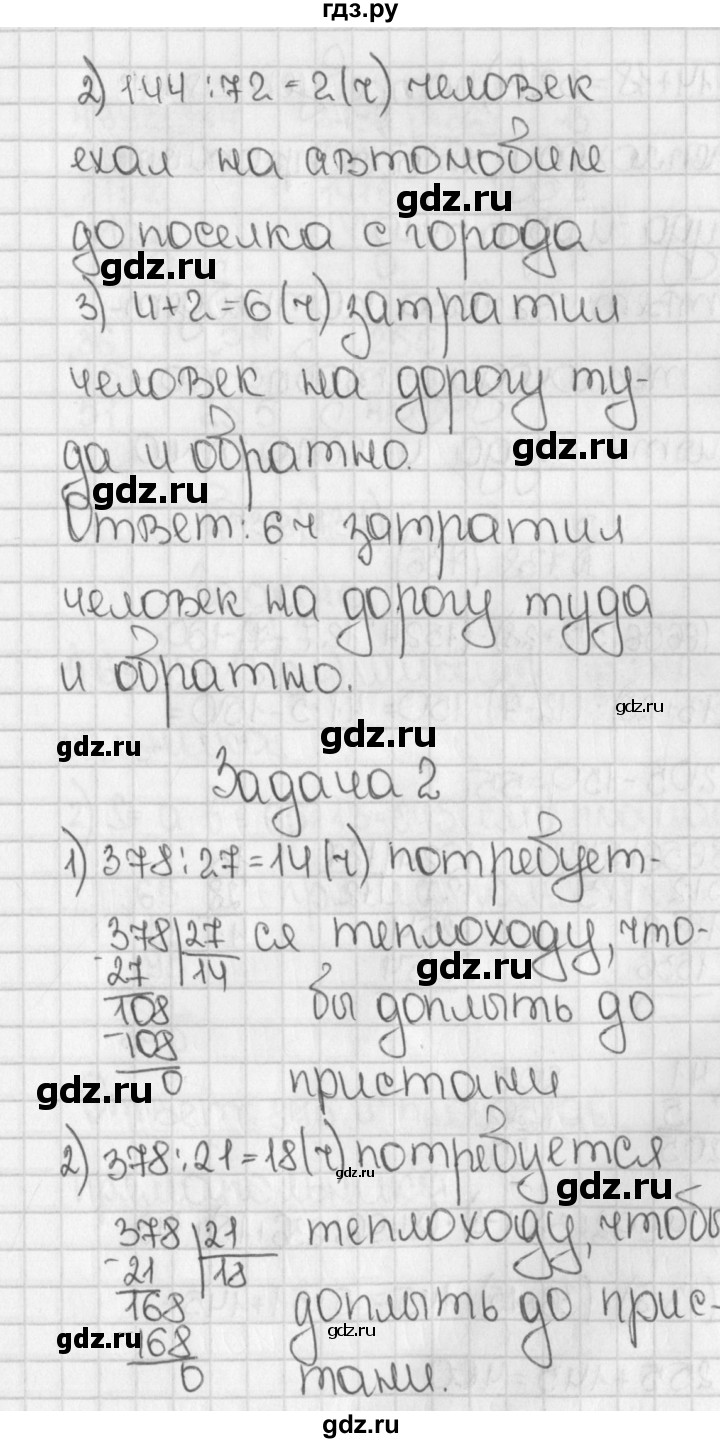 гдз.ру
2) 144:72=2(ч) человек
ехал на автомобиле
gdz.ru
до поселка с города
gdz.ru
3) 4+2=6(ч) затратил
человек на дорогу ту-
да и обратно.
gdz.ru
gdz.ru
Ответ: 6 ч затратил
человек на дорогу туда
и обратно.
gdz.ru
gdz.ru
gdz.ru
Задача 2
1) 378:27=14(ч) потребует-
378|27 ся теплоходу, что-
-27 14
gdz.ru
108 бы доплыть до
-108
gdz.ru
0 пристани
2) 378:21=18(ч) потребуется
gdz.ru
gdz.ru
378|21 теплоходу, чтобы
-21 18
168 доплыть до прис-
gdz.ru
gdz.ru
-168
0 тани.
gdz.ru